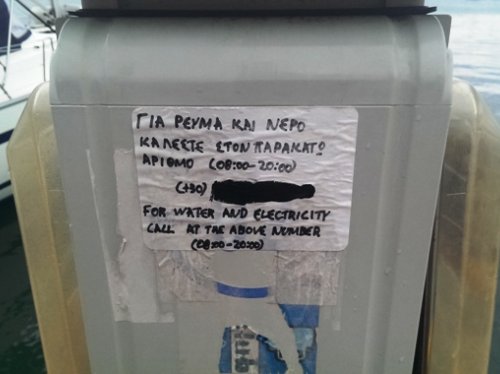 ΓΙΑ ΡΕΥΜΑ ΚΑΙ ΝΕΡΟ
ΚΑΛΕΣΤΕ ΣΤΟΝ ΠΑΡΑΚΑΤΩ
ΑΡΙΘΜΟ (08:00-20:00)
(+30)
FOR WATER AND ELECTRICITY
CALL AT THE ABOVE NUMBER
(08:00-20:00)